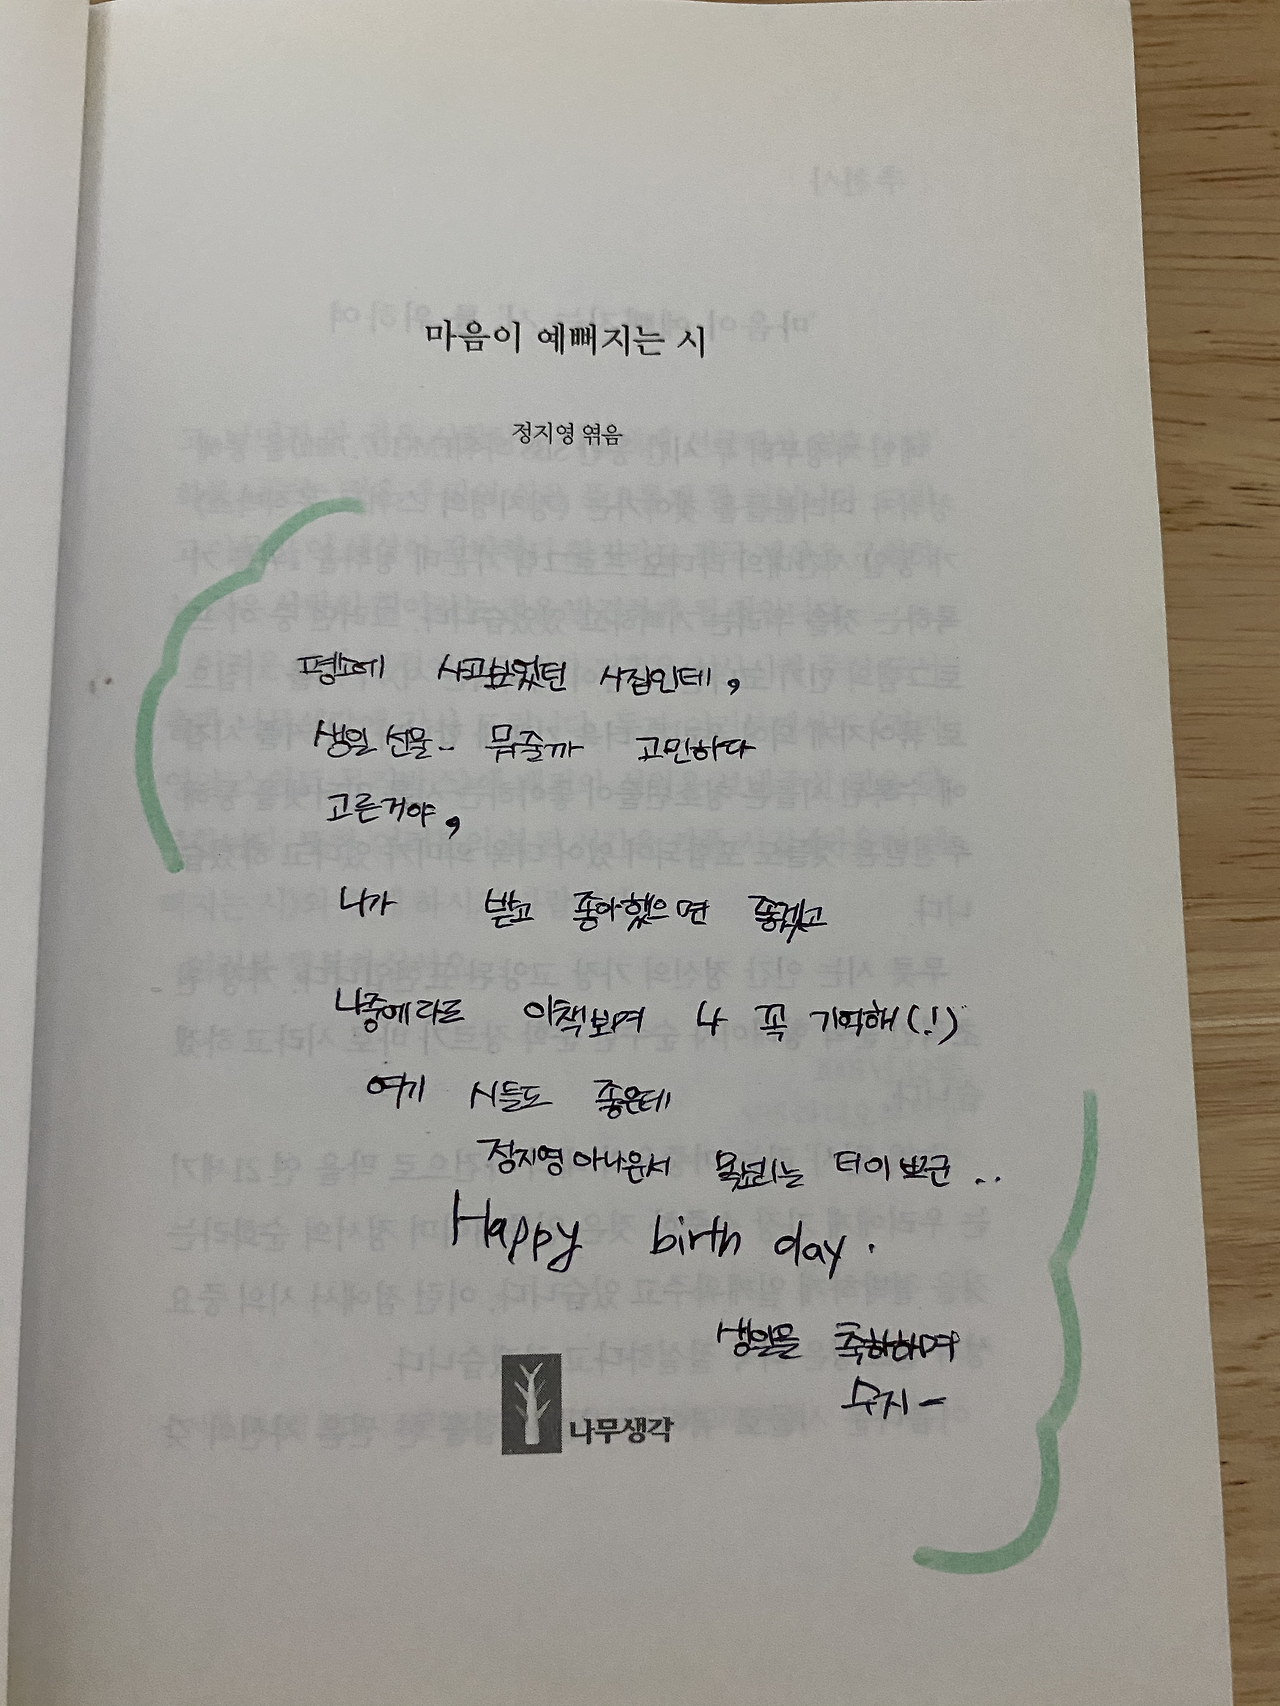 마음이 예뻐지는 시
정지영 엮음
평소에 사고보었던 시집인데,
생일 선물- 뭐줄까 고민하다
고른거야,
니가 받고 좋아했으면 좋겠고
나중에라도 이책보며 나 꼭 기억해(!)
여기 시들도 좋은데
정지영 아나운서 목소리는 더이쁘군..
Happy birth day.
생일을 축하하며
수지-
나무생각